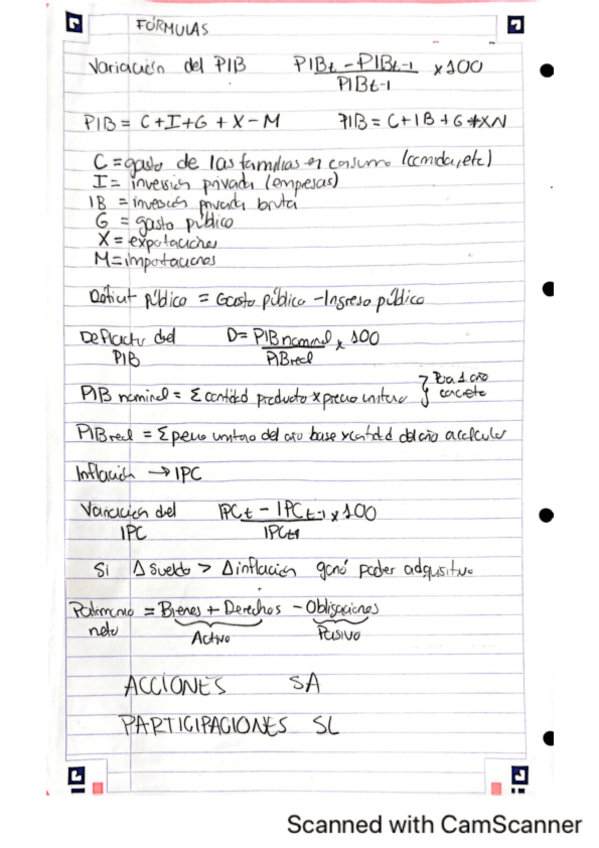 FÓRMULAS
Variación del PIB PIBt - PIBt-1 x100
PIBt-1
PIB = C+I+G + X-M PIB = C+IB+G+XN
C = gasto de las familias en consumo (comida, etc)
I = inversión privada (empresas)
IB = inversión privada bruta
G = gasto público
X = expotaciones
M = importaciones
Déficit público = Gasto público - Ingreso público
Deflactor del D = PIB nominal x 100
PIB PIBreal
PIB nominal = Σ cantidad producto x precio unitario } Para 1 año
concreto
PIBreal = Σ precio unitario del año base x cantidad del año a calcular
Inflación → IPC
Variación del IPCt - IPCt-1 x100
IPC IPCt-1
Si Δ sueldo > Δ inflación ganó poder adquisitivo
Patrimonio = Bienes + Derechos - Obligaciones
neto Activo Pasivo
ACCIONES SA
PARTICIPACIONES SL
Scanned with CamScanner